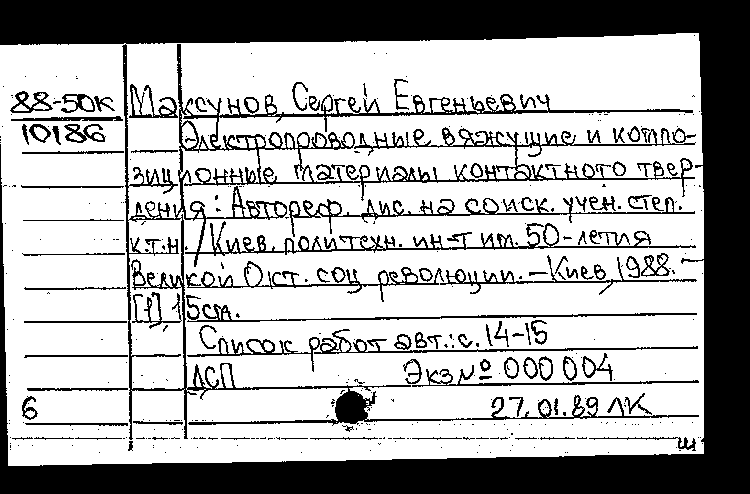 88-50к Максунов, Сергей Евгеньевич
10186 Электропроводные вяжущие и компо-
зиционные материалы контактного твер-
дения: Автореф. дис. на соиск. учен. степ.
к.т.н. /Киев. политехн. ин-т им. 50-летия
Великой Окт. соц революции. —Киев, 1988. —
[1], 15см.
Список работ авт.: с. 14-15
ДСП Экз № 000 004
6 27.01.89 ЛК
ш